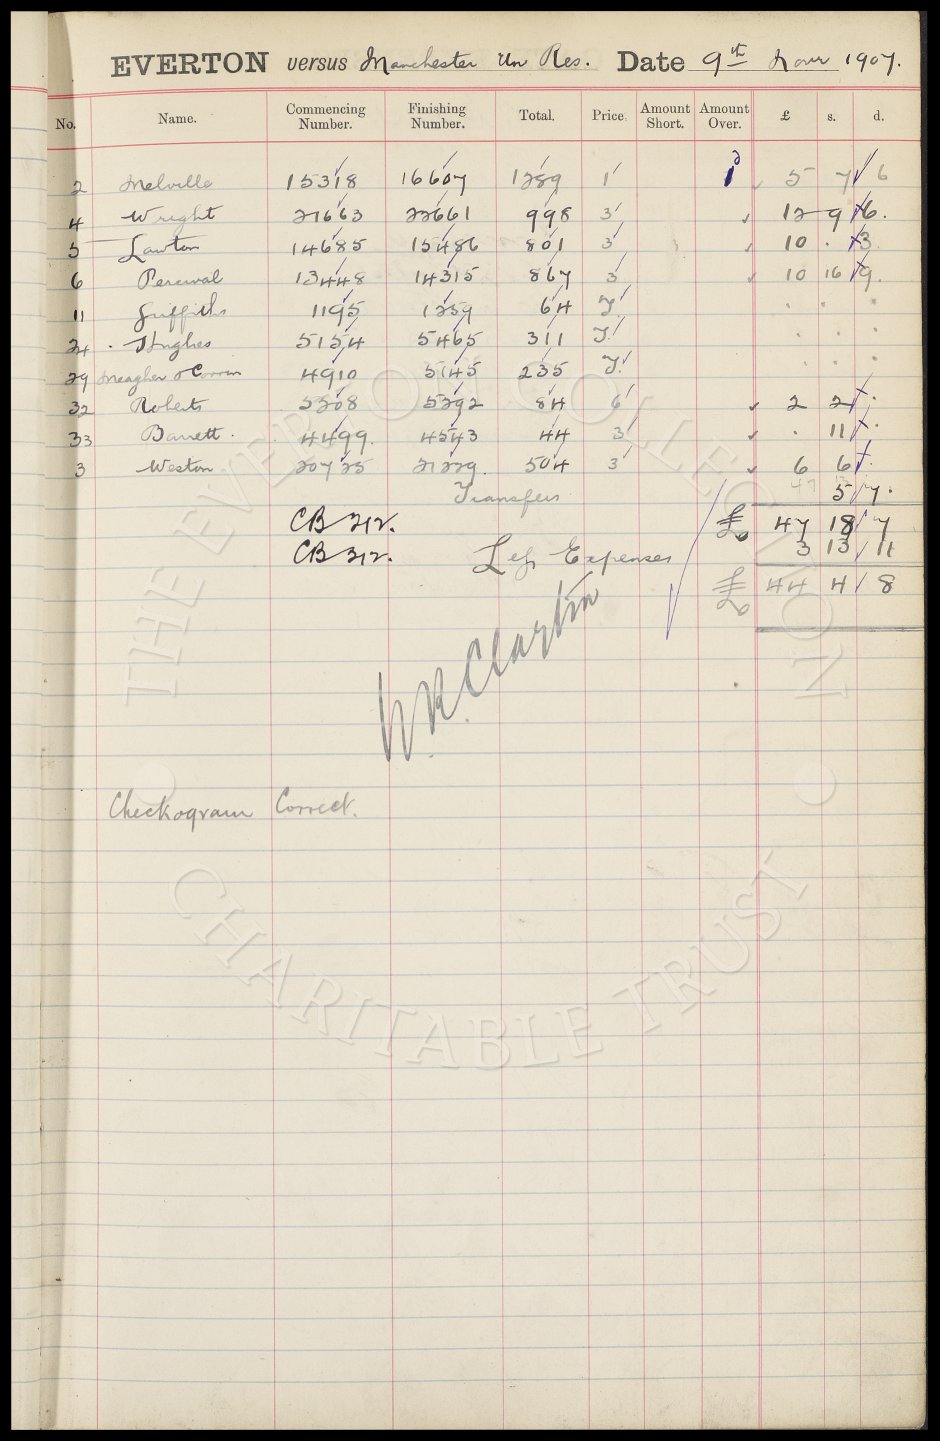 EVERTON versus Manchester Un Res. Date 9th Novr 1907.
No. Name. Commencing Number. Finishing Number. Total. Price. Amount Short. Amount Over. £ s. d.
2 Melville 15318 16607 1289 1 1d 5 7 6
4 Wright 21663 22661 998 3 12 9 6.
5 Lawton 14685 15486 801 3 10 . 3
6 Percival 13448 14315 867 3 10 16 9.
11 Griffiths 1195 1259 64 T . . .
24 Hughes 5154 5465 311 T . . .
29 Meagher & Corrin 4910 5145 235 T. . . .
32 Roberts 5208 5292 84 6 2 2 .
33 Barrett. 4499 4543 44 3 . 11 .
3 Weston 20725 21229. 504 3 6 6 .
Transfers 5 7.
CB 212. £ 47 18 7
CB 312. Less Expenses 3 13 11
£ 44 4 8
W.R. Clayton
Checkogram Correct.
THE EVERTON COLLECTION
CHARITABLE TRUST